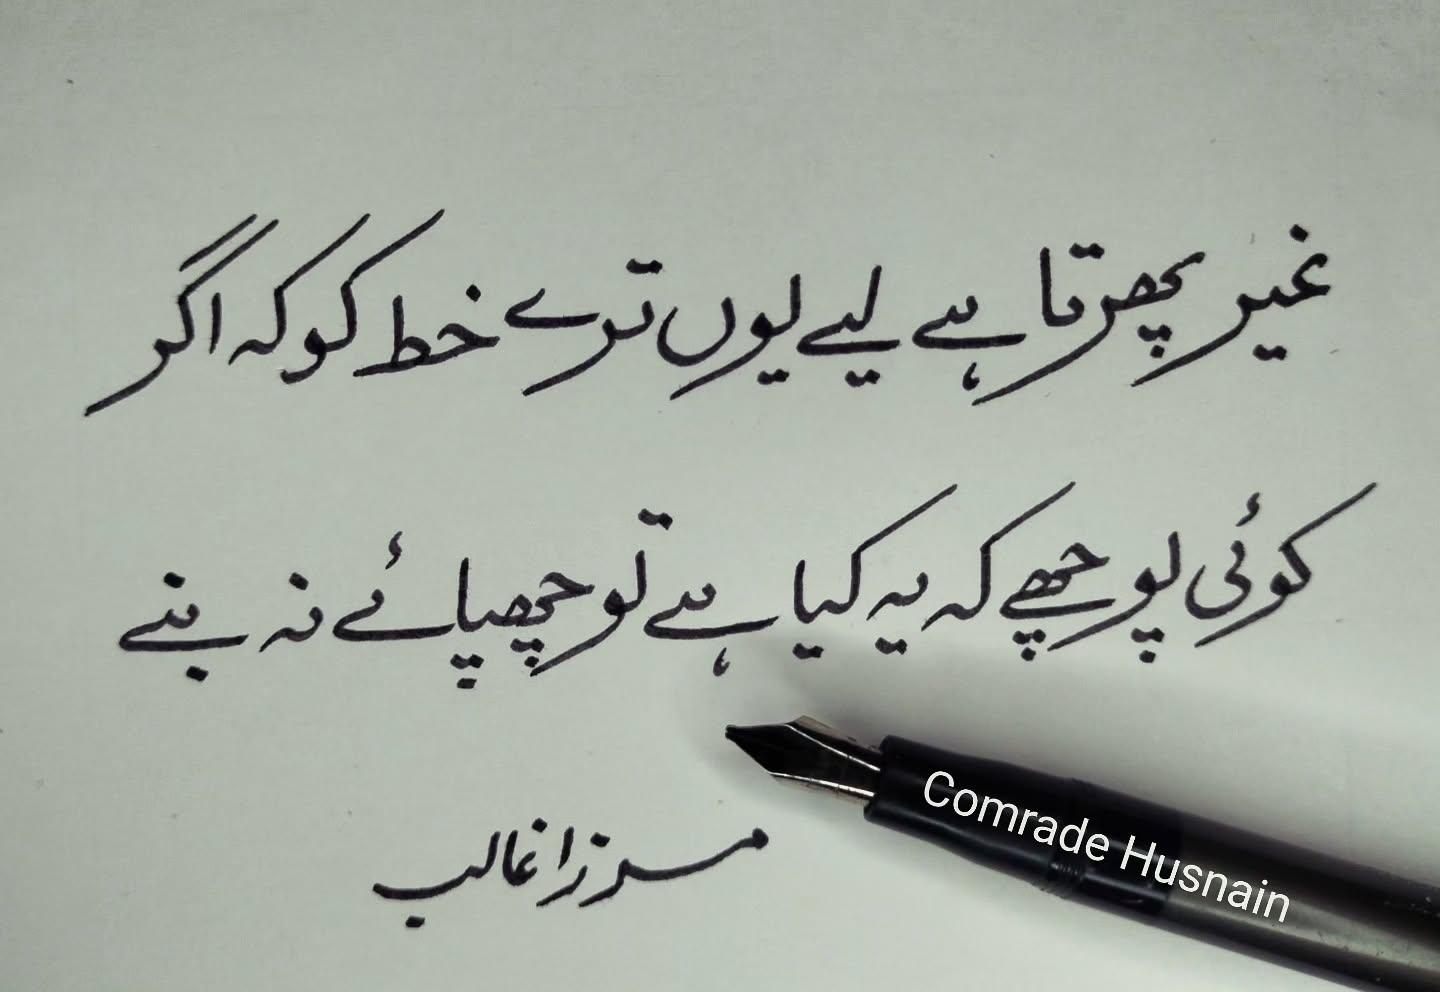 غیر پھرتا ہے لیے یوں ترے خط کو کہ اگر
کوئی پوچھے کہ یہ کیا ہے تو چھپائے نہ بنے
مرزا غالب
Comrade Husnain